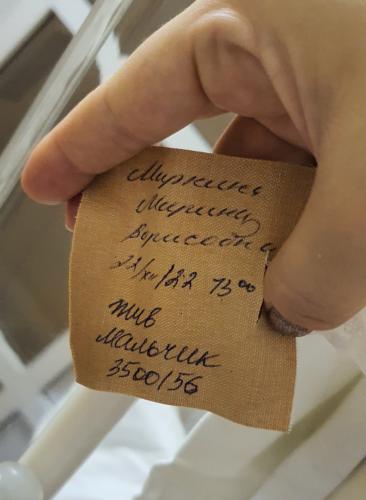 Миркина
Марина
Борисовна
22/XII/22 13⁰⁰
жив
мальчик
3500/56